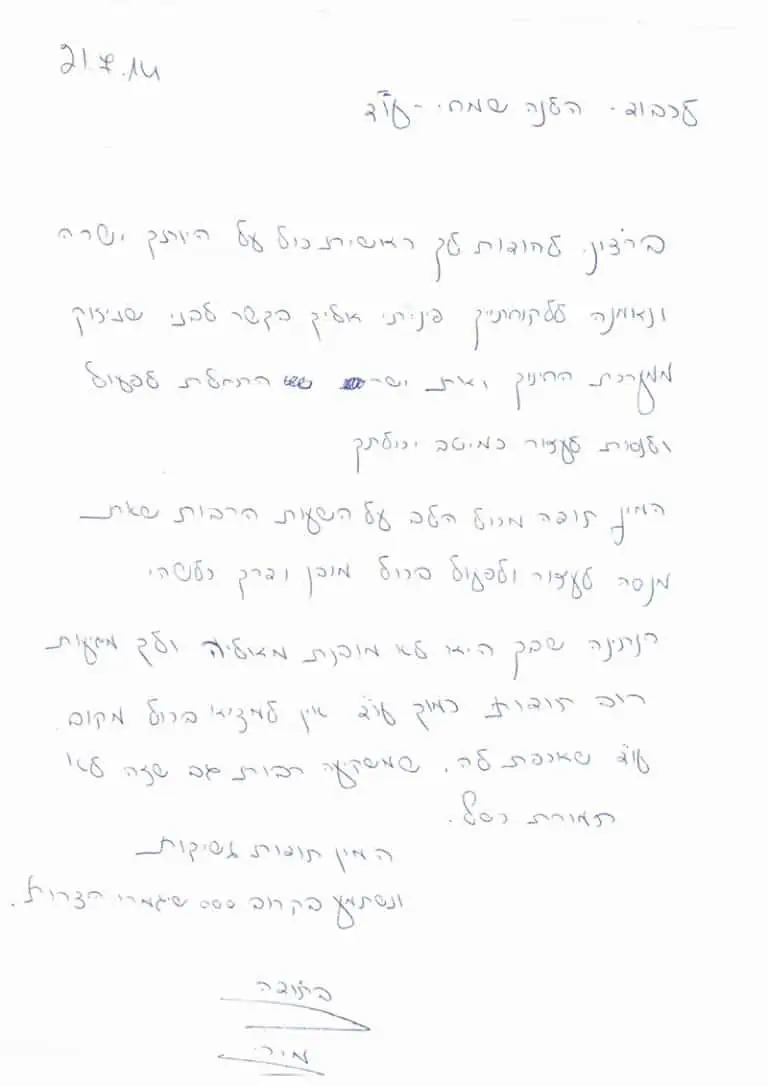 21.7.14
לכבוד. הלנה שמחי - עו"ד
ברצוני להודות לך ראשית כול על היותך ישרה
ונאמנה ללקוחותייך פניתי אלייך בקשר לבני שניזוק
ממערכת החינוך ואת ישר התחלת לפעול
ולנסות לעזור כמיטב יכולתך
המון תודה מכול הלב על השעות הרבות שאת
מנסה לעזור ולפעול בכול מובן ודרך כלשהי
הנתינה שבך היא לא מובנת מאוליה ולך מגיעות
רוב תודות כמוך עו"ד אין למצוא בכול מקום.
עו"ד שאכפת לה. שמשקיעה רבות גם שזה לא
תמורת כסף.
המון תודות ונשיקות
ונשתמע בקרוב שיגמרו הצרות.
בתודה
מירי